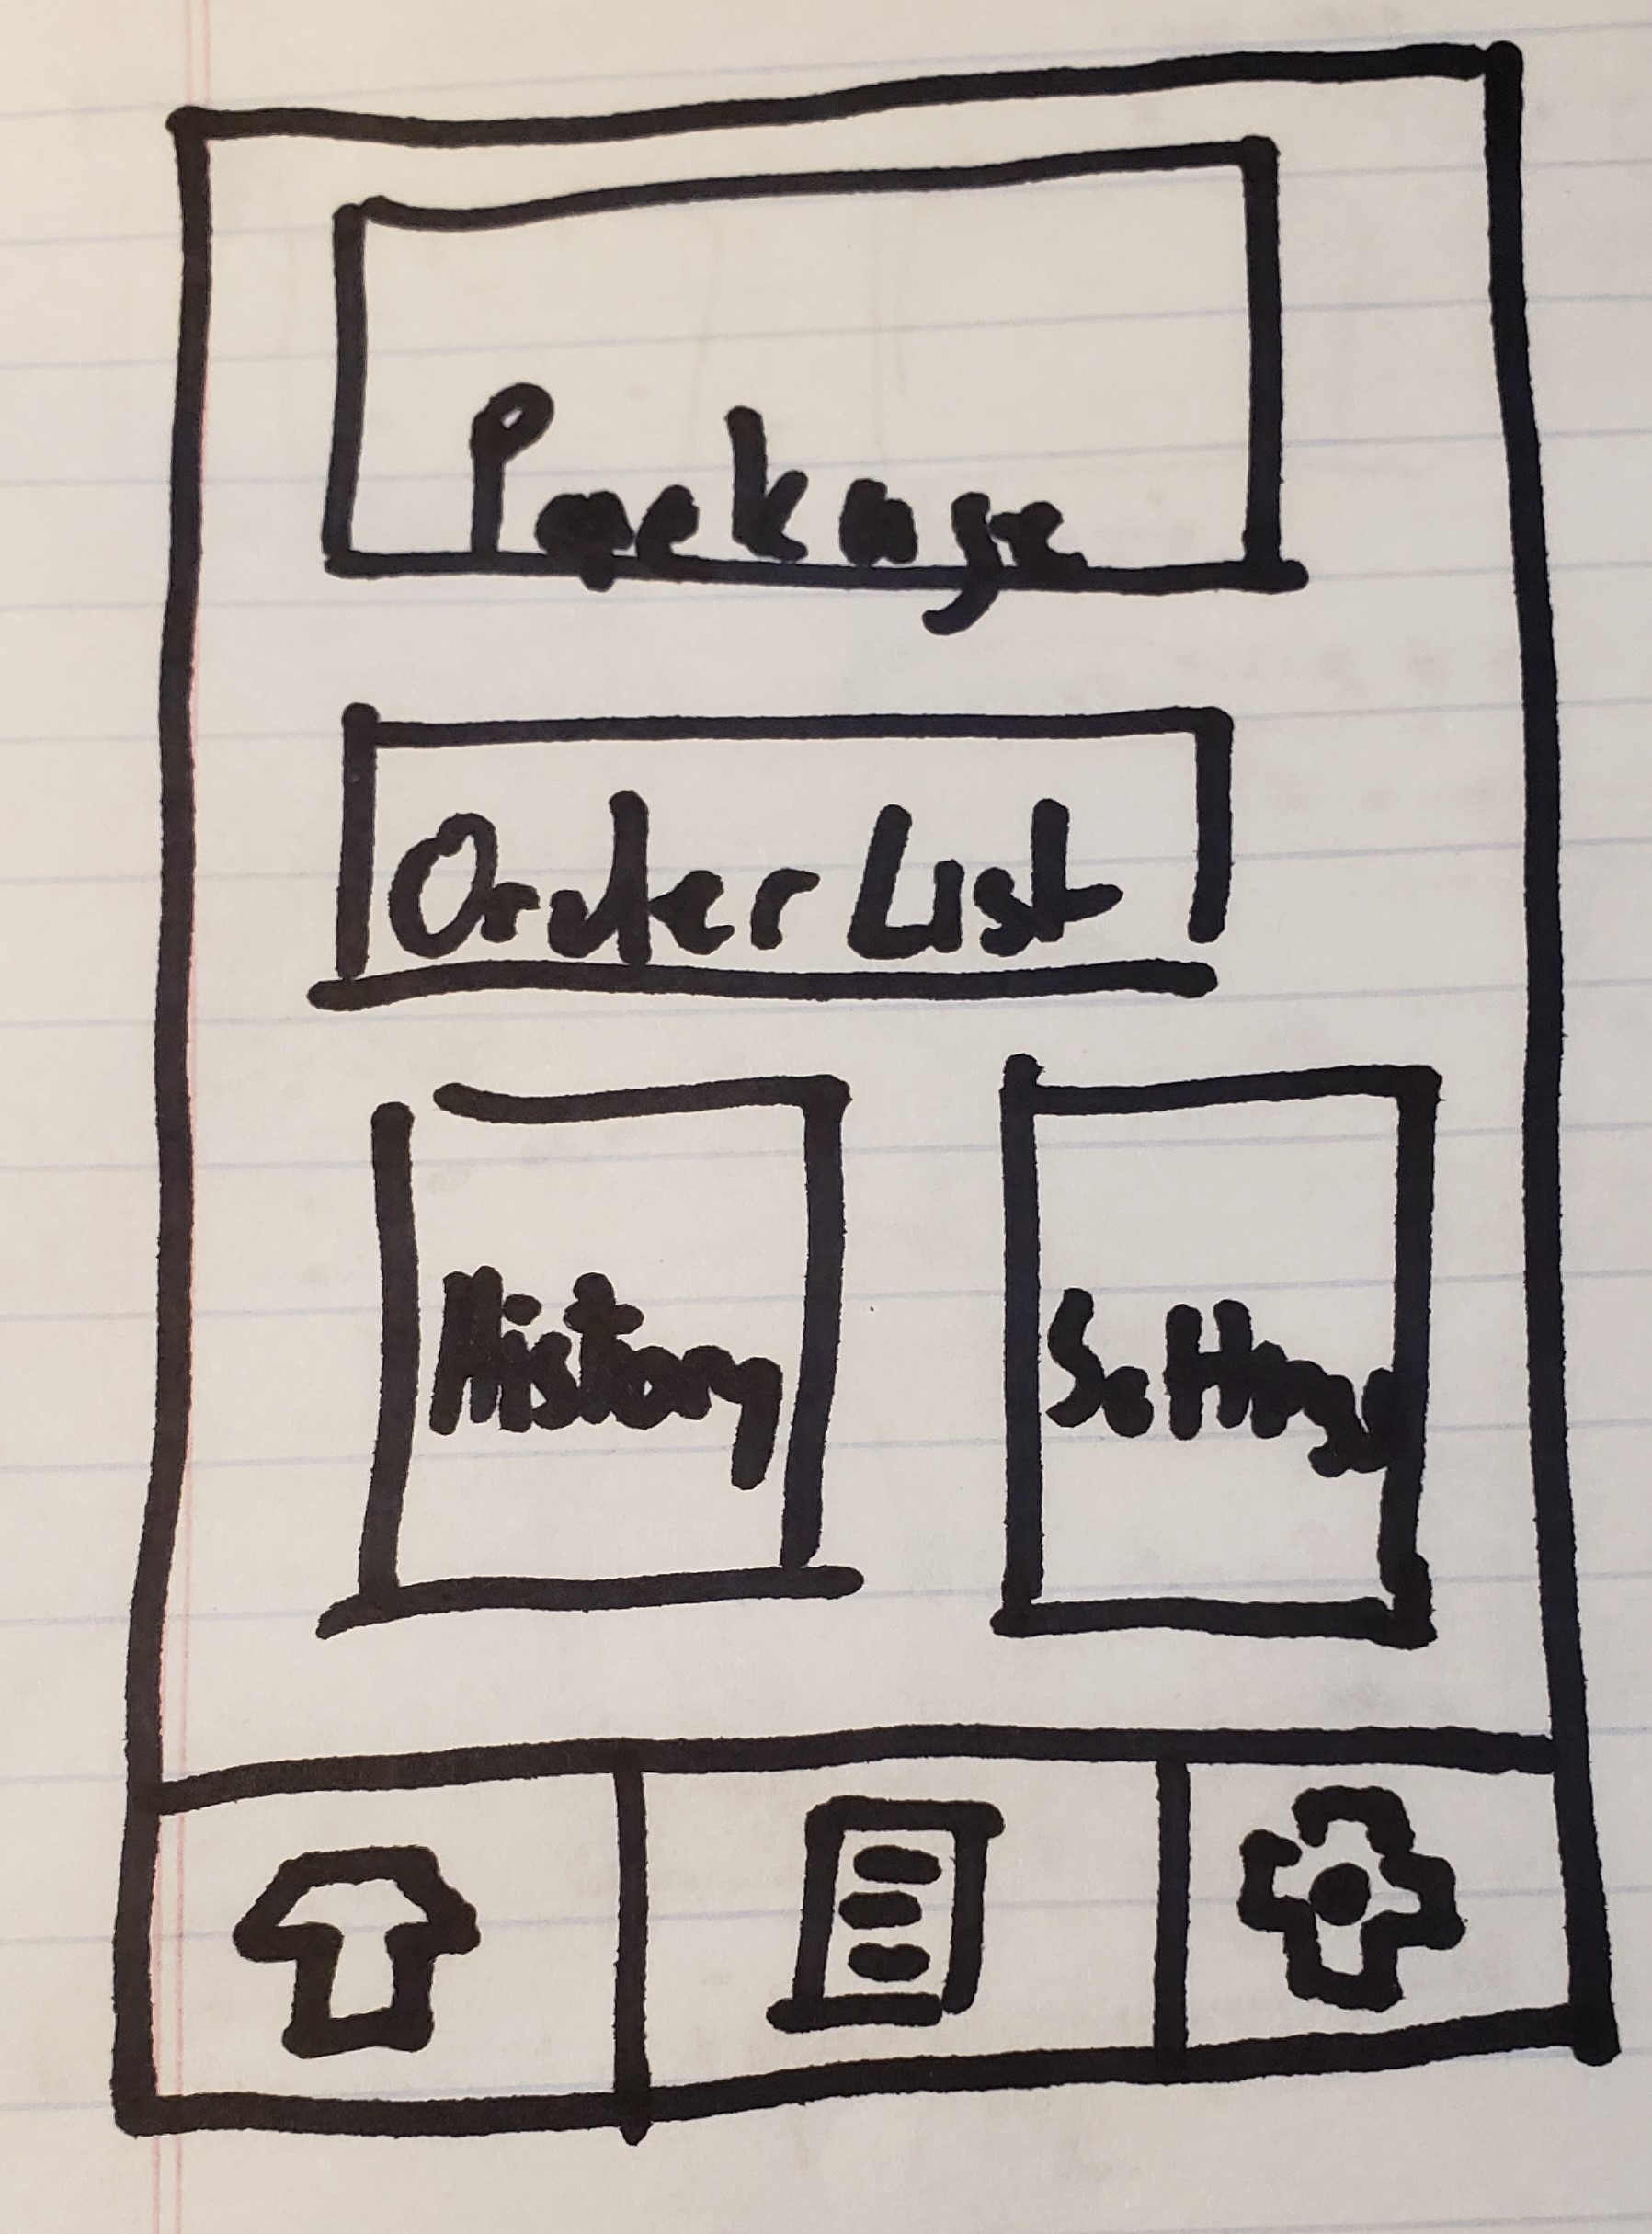 Package
Order List
History
Settings